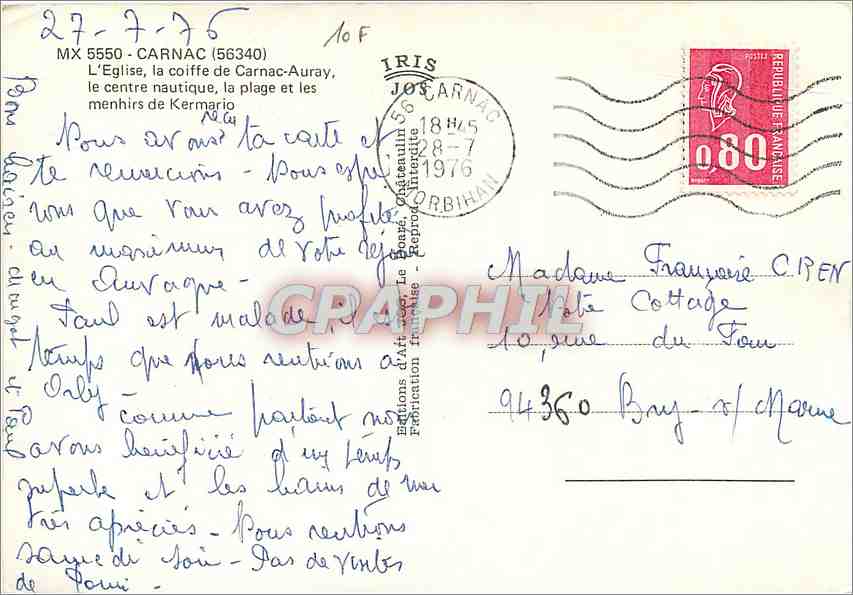 27-7-76
10F
MX 5550 - CARNAC (56340)
L'Eglise, la coiffe de Carnac-Auray,
le centre nautique, la plage et les
menhirs de Kermario
IRIS
JOS
56 CARNAC
18H45
28-7
1976
MORBIHAN
POSTES
REPUBLIQUE FRANÇAISE
0,80
reçu
Nous avons ta carte et
te remercions - Nous espé
rons que vous avez profité
au maximum de votre séjour
en Auvergne -
Paul est malade, il est
temps que nous rentrions à
Orly -
Comme partout nous
avons bénéficié d'un temps
superbe et les bains de mer
très apréciés - Nous rentrons
samedi soir - Pas de visites
de
Bons baisers - et Paul
Editions d'Art JOS, Le Doaré, Châteaulin
Fabrication française - Reprod. Interdite
CPAPHIL
Madame Françoise CREN
Notre Cottage
10, rue du Four
94360 Bry-s/Marne